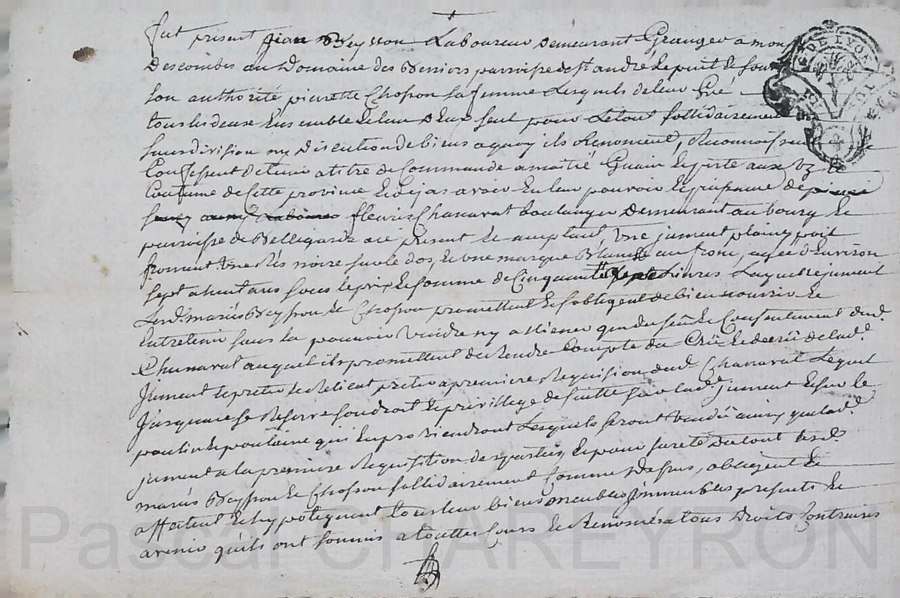 fut present jean Beysson Laboureur demeurant Granger a mon
Descombes au Domaine des Beniers parroisse de st andré le puit le sou
son authorité pierrette Chosson sa femme Lesquels de leur Gré
tous les deux Ensemble et lun D'Eux seul pour Le tout sollidairement
sans division ny discution de biens a quoy ils Renoncent, Reconnoissent
Confessent detenir a titre de Commande a moitié Guain Et perte aux
Coutume de Cette province Et deja avoir En leur pouvoir Et puissance de
fleurie Chanavat boulanger Demeurant au bourg Et
parroisse de Bellegarde icy present Et acceptant Une jument plaine poil
froment Une Res noire sur le dos, Et une marque Blanche au front, agée d'Environ
sept a huit ans sous Le prix Et somme de Cinquante sept Livres Laquelle jument
Lesds. mariés Beysson Et Chosson promettent Et sobligent de bien nourrir Et
Entretenir sans La pouvoir Vendre ny alliener que du sceu Et Consentement dud
Chanavat auquel ils promettent de Rendre Compte du Cru Et decru de lad.
jument Et preter Le Relicat preter a premiere Requisition dud. Chanavat Lequel
jusqua ce se Reserve soudroit Et privillege de suitte sur lad. jument Et sur le
poulin Et pouline qui En proviendront Lesquels seront Vendu ainsy que lad.
jument a la premiere Requisition des parties, Et pour sureté Du tout Lesd.
mariés Beysson Et Chosson sollidairement Comme Dessus, obligent Et
affattent Et hypotequent tous leur biens meubles jmmeubles presents Et
avenir quils ont soumis a touttes Cours Et Renoncé a tous Droits Contraires
DE LYON
Pascal CHAREYRON